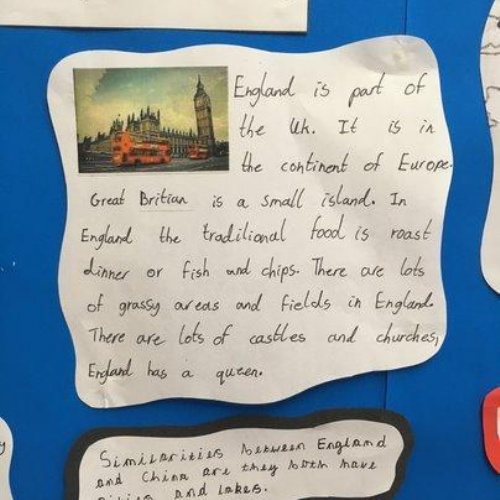 England is part of
the Uk. It is in
the continent of Europe.
Great Britian is a small island. In
England the traditional food is roast
dinner or fish and chips. There are lots
of grassy areas and fields in England.
There are lots of castles and churches,
England has a queen.
Similarities between England
and China are they both have
and lakes.